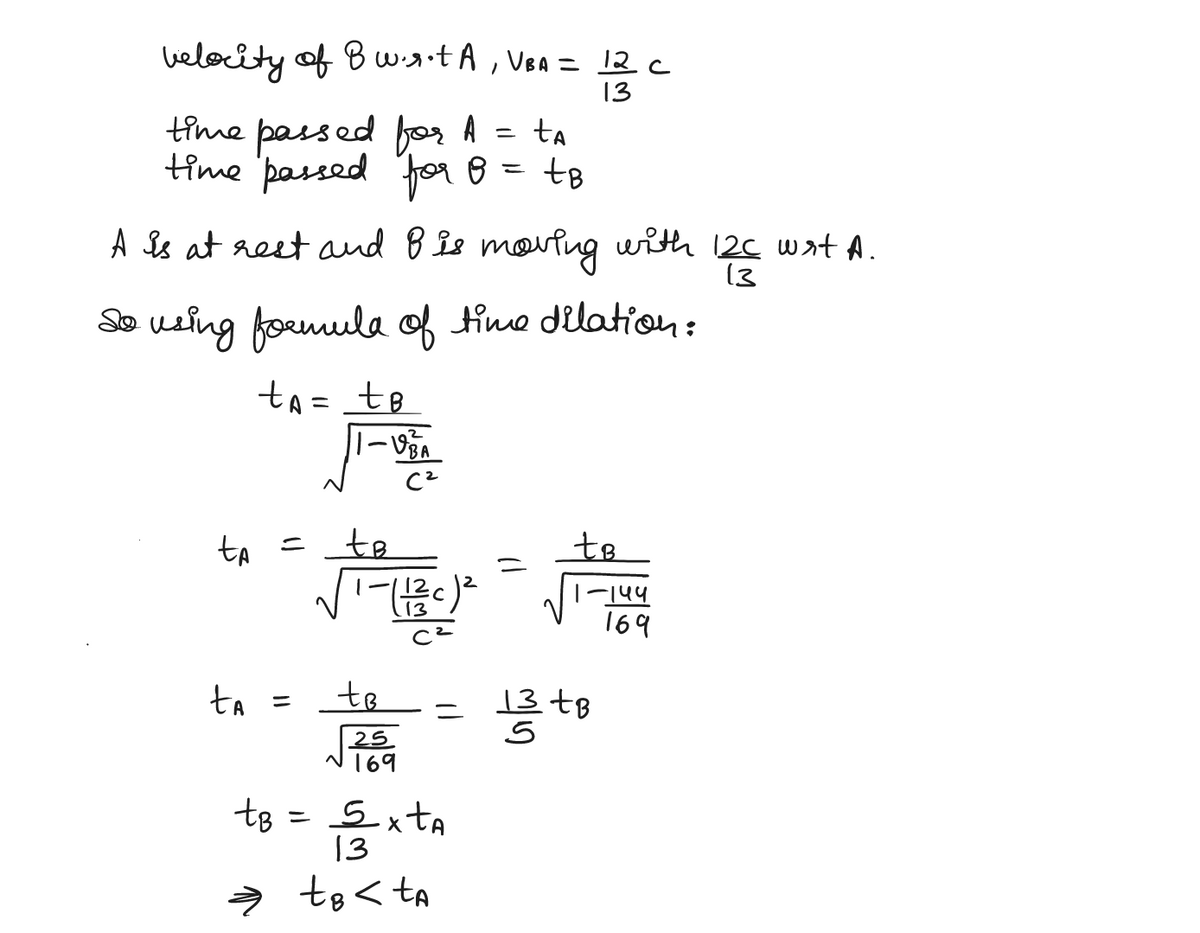 velocity of B w.r.t A, VBA = 12/13 c
time passed for A = tA
time passed for B = tB
A is at rest and B is moving with 12c/13 wrt A.
So using formula of time dilation:
tA = tB/√(1-v²BA/c²)
tA = tB/√(1-(12/13 c)²/c²) = tB/√(1-144/169)
tA = tB/√(25/169) = 13/5 tB
tB = 5/13 x tA
⇒ tB < tA